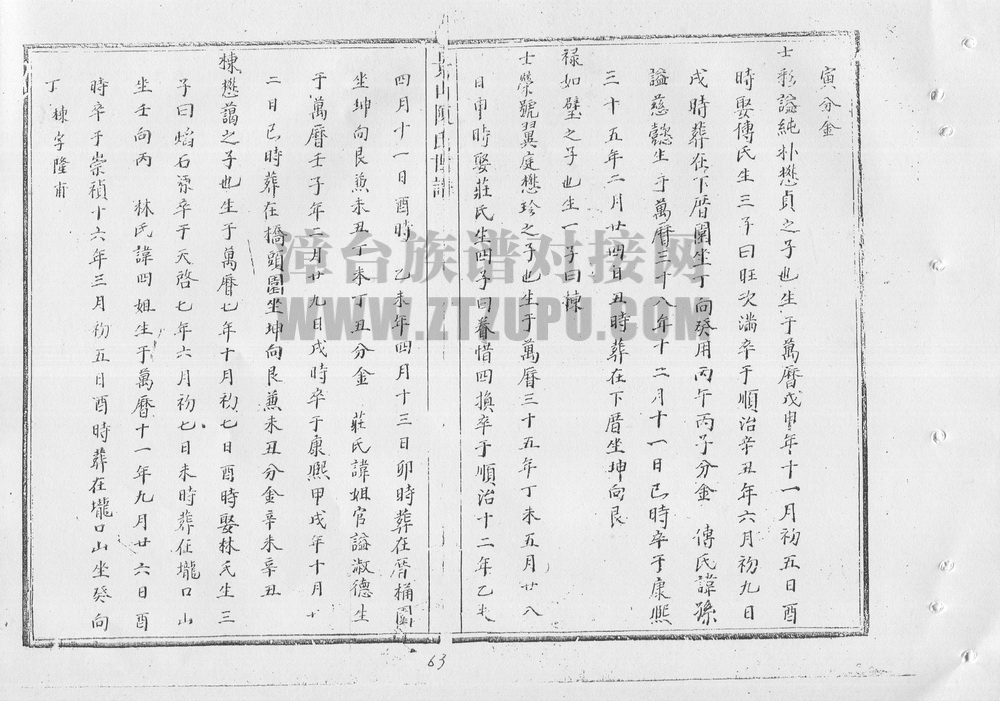 寅分金
士彩謚純朴懋貞之子也生于萬曆戊申年十一月初五日酉
時娶傅氏生三子曰旺次滿卒于順治辛丑年六月初九日
戌時葬在下厝園坐丁向癸用丙午丙子分金 傅氏諱孫
謚慈懿生于萬曆三十八年十二月十一日巳時卒于康熙
三十五年二月廿四日丑時葬在下厝坐坤向艮
祿如璧之子也生一子曰棟
士榮號翼庭懋珍之子也生于萬曆三十五年丁未五月廿八
日申時娶莊氏生四子曰春惜四換卒于順治十二年乙未
四月十一日酉時 乙未年四月十三日卯時葬在厝桶園
坐坤向艮兼未丑于未丁丑分金 莊氏諱姐官謚淑德生
于萬曆壬子年二月廿九日戌時卒于康熙甲戌年十月十
二日巳時葬在橋頭園坐坤向艮兼未丑分金辛未辛丑
棟懋藹之子也生于萬曆七年十月初七日酉時娶林氏生三
子曰焰石添卒于天啓七年六月初七日未時葬在壠口山
坐壬向丙 林氏諱四姐生于萬曆十一年九月廿六日酉
時卒于崇禎十六年三月初五日酉時葬在壠口山坐癸向
丁 棟字隆甫
63
漳台族谱对接网
WWW.ZTZUPU.COM